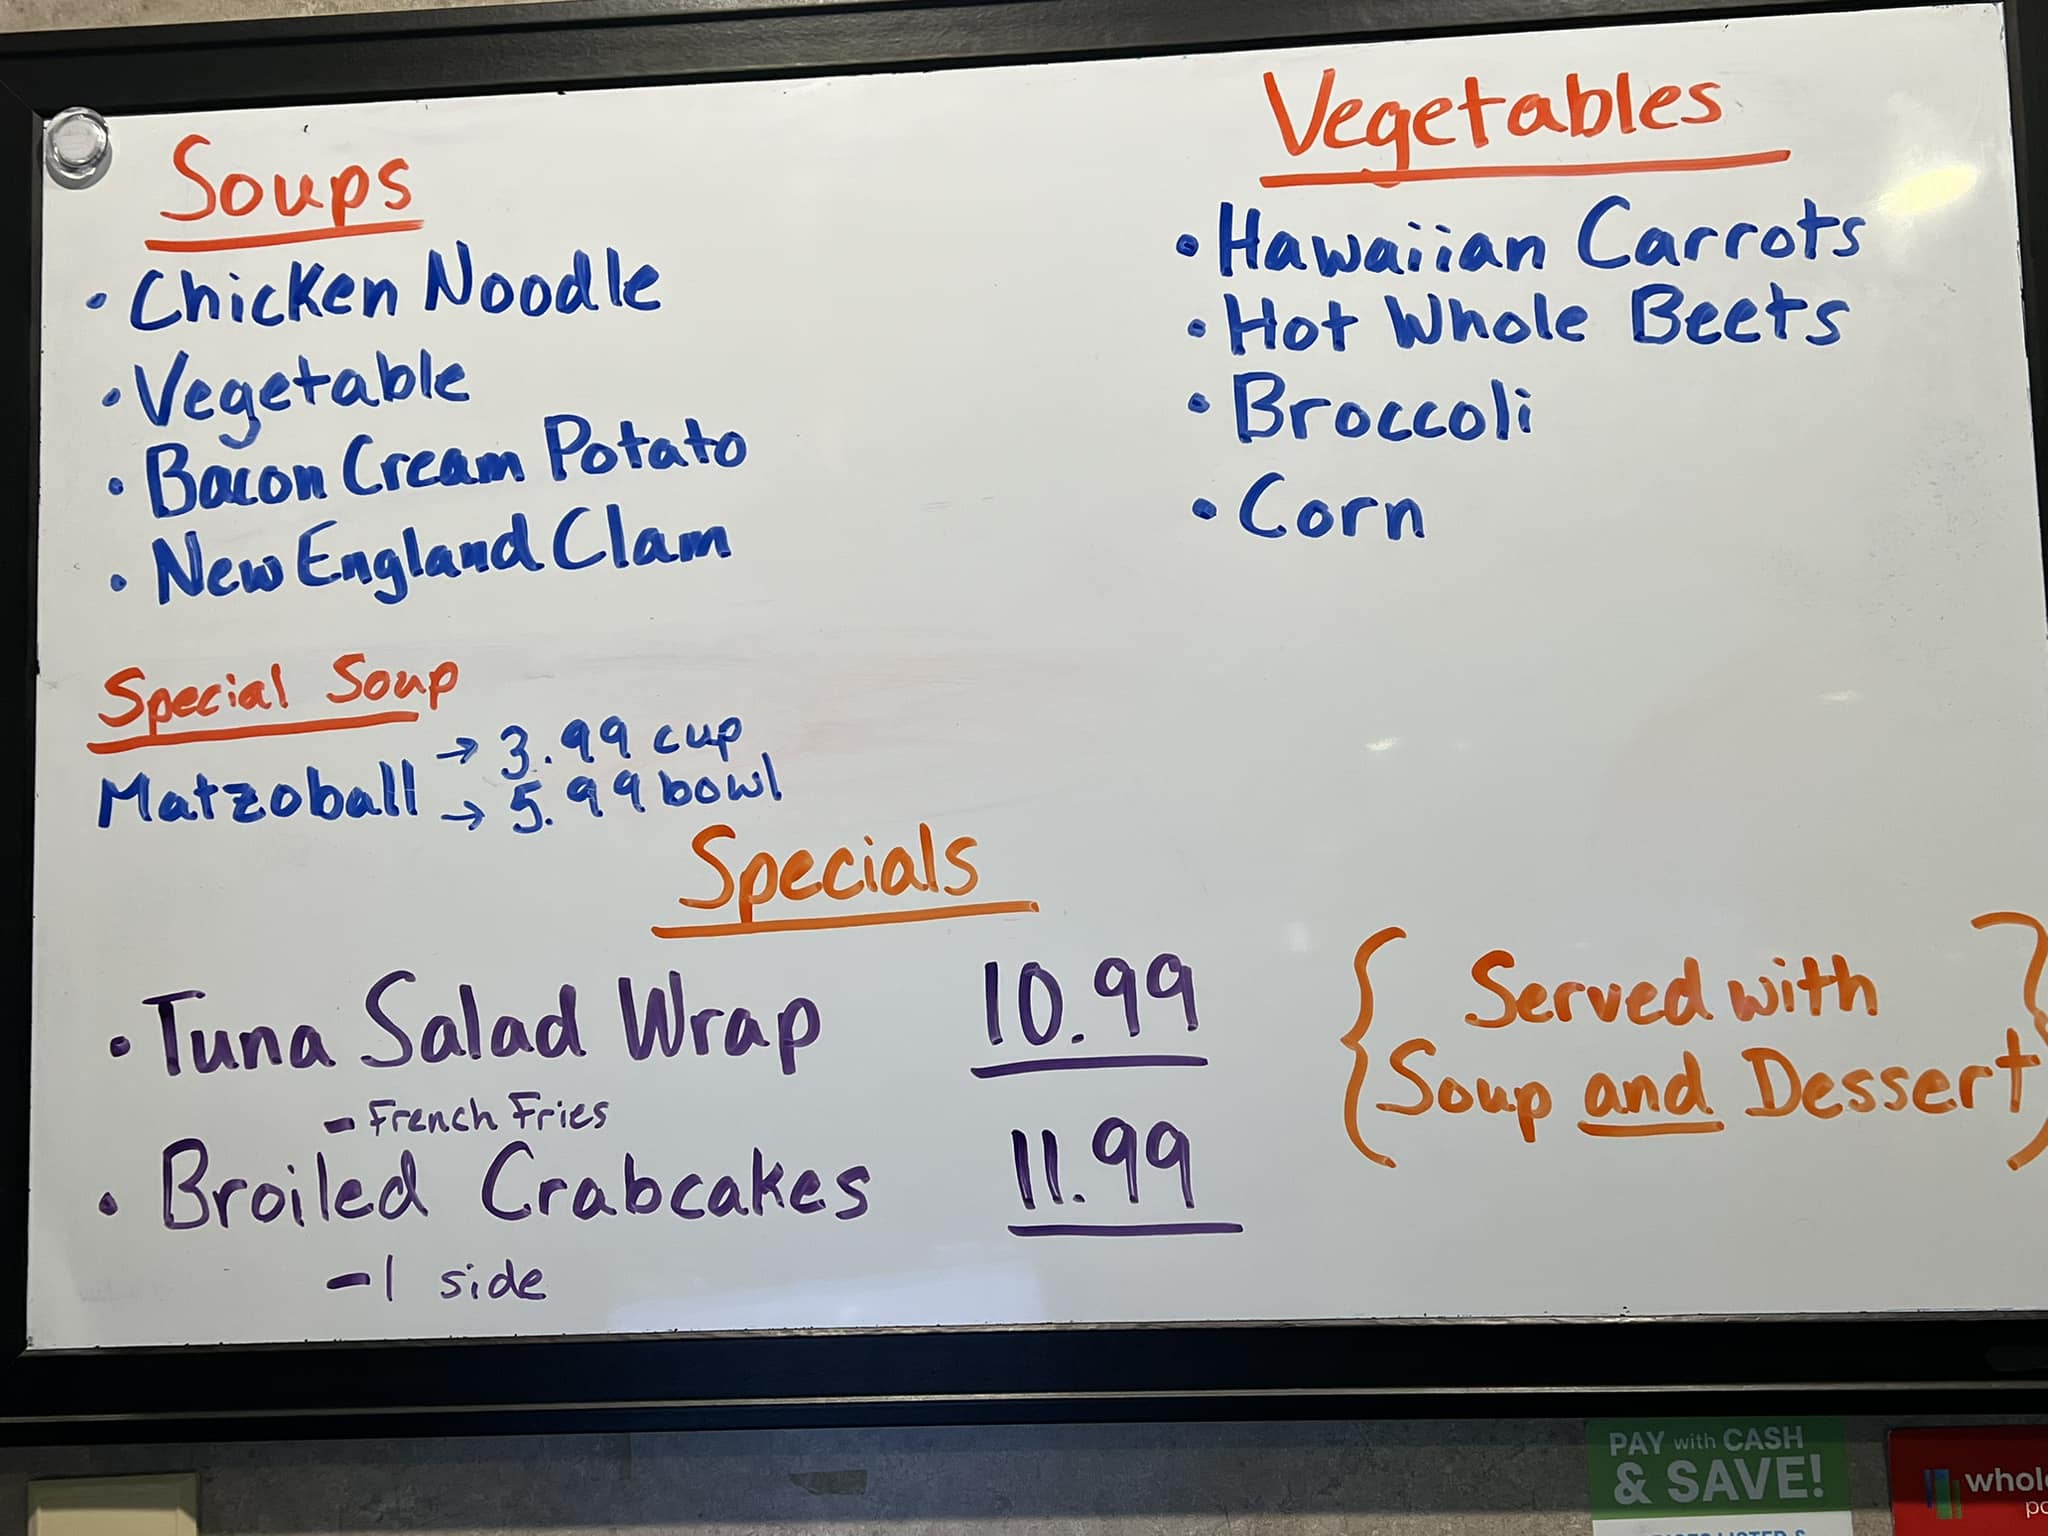 Soups
• Chicken Noodle
• Vegetable
• Bacon Cream Potato
• New England Clam
Special Soup
Matzoball → 3.99 cup
→ 5.99 bowl
Vegetables
• Hawaiian Carrots
• Hot Whole Beets
• Broccoli
• Corn
Specials
• Tuna Salad Wrap 10.99
- French Fries
• Broiled Crabcakes 11.99
- 1 side
{ Served with
Soup and Dessert }
PAY with CASH
& SAVE!